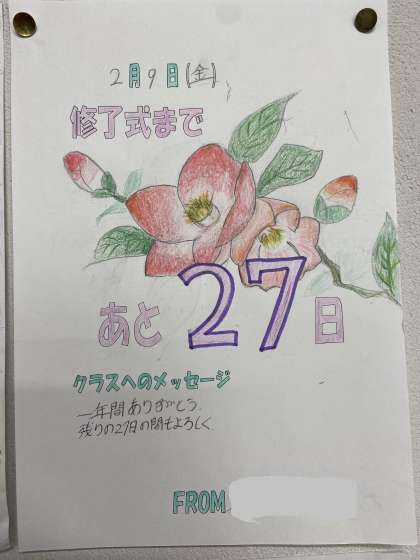 2月9日(金)
修了式まで
あと27日
クラスへのメッセージ
一年間ありがとう.
残りの27日の間もよろしく.
FROM